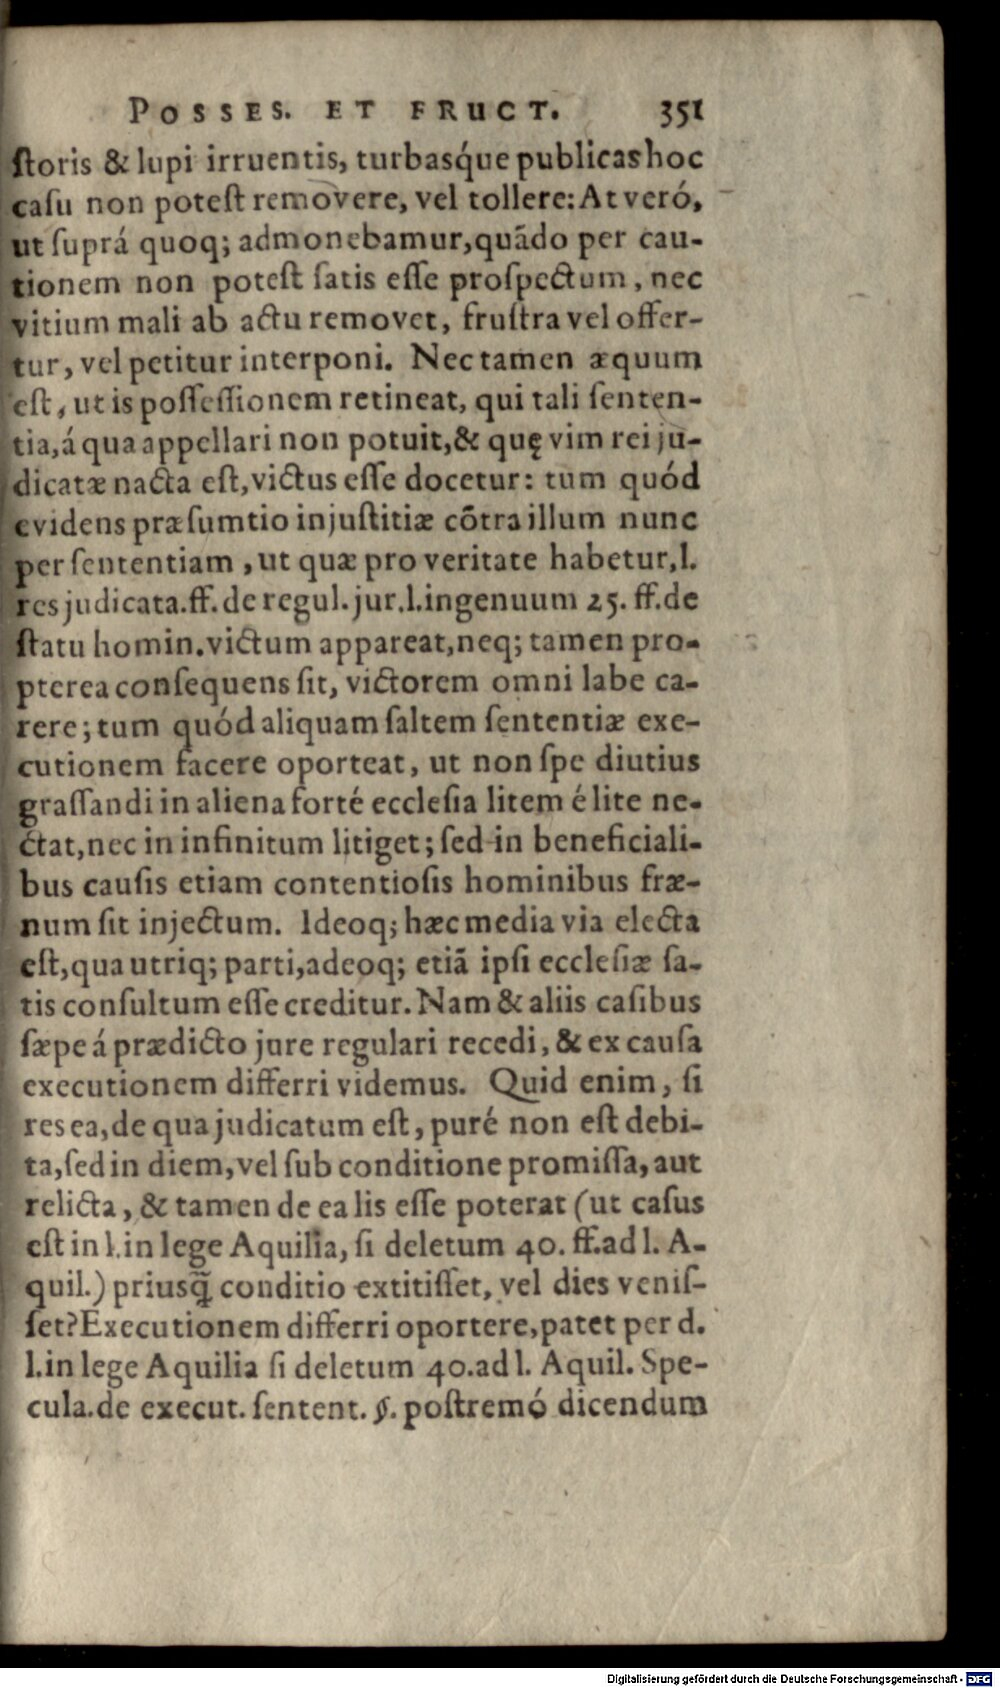 POSSES. ET FRUCT. 351
ſtoris & lupi irruentis, turbasq́ue publicas hoc
caſu non poteſt removere, vel tollere: At veró,
ut ſuprá quoq; admonebamur, quãdo per cau-
tionem non poteſt ſatis eſſe proſpectum, nec
vitium mali ab actu removet, fruſtra vel offer-
tur, vel petitur interponi. Nec tamen æquum
eſt, ut is poſſeſſionem retineat, qui tali ſenten-
tia, á qua appellari non potuit, & quę vim rei ju-
dicatæ nacta eſt, victus eſſe docetur: tum quód
evidens præſumtio injuſtitiæ cõtra illum nunc
per ſententiam, ut quæ pro veritate habetur, l.
res judicata. ff. de regul. jur. l. ingenuum 25. ff. de
ſtatu homin. victum appareat, neq; tamen pro-
pterea conſequens ſit, victorem omni labe ca-
rere; tum quód aliquam ſaltem ſententiæ exe-
cutionem facere oporteat, ut non ſpe diutius
graſſandi in aliena forté eccleſia litem é lite ne-
ctat, nec in infinitum litiget; ſed in beneficiali-
bus cauſis etiam contentioſis hominibus fræ-
num ſit injectum. Ideoq; hæc media via electa
eſt, qua utriq; parti, adeoq; etiã ipſi eccleſiæ ſa-
tis conſultum eſſe creditur. Nam & aliis caſibus
ſæpe á prædicto jure regulari recedi, & ex cauſa
executionem differri videmus. Quid enim, ſi
res ea, de qua judicatum eſt, puré non eſt debi-
ta, ſed in diem, vel ſub conditione promiſſa, aut
relicta, & tamen de ea lis eſſe poterat (ut caſus
eſt in l. in lege Aquilia, ſi deletum 40. ff. ad l. A-
quil.) priusq̃ conditio extitiſſet, vel dies veniſ-
ſet? Executionem differri oportere, patet per d.
l. in lege Aquilia ſi deletum 40. ad l. Aquil. Spe-
cula. de execut. ſentent. §. poſtremó dicendum
Digitalisierung gefördert durch die Deutsche Forschungsgemeinschaft - DFG